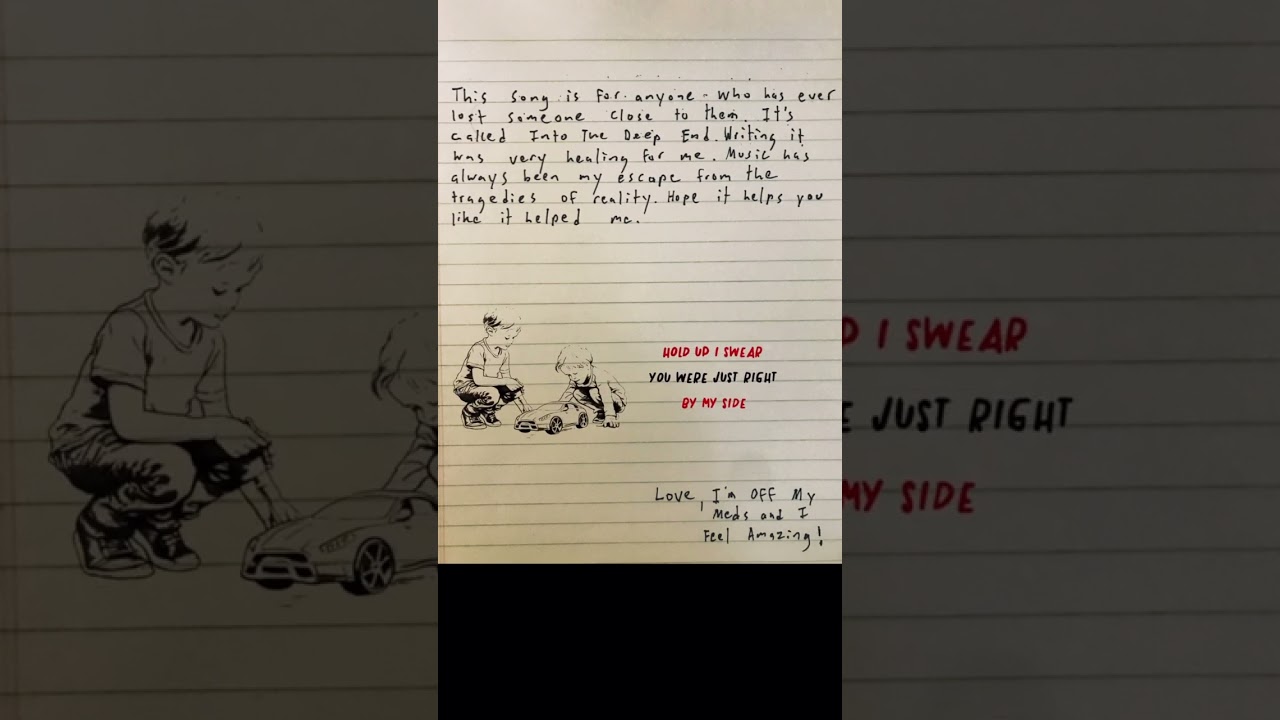 This song is for anyone who has ever
lost someone close to them. It's
called Into The Deep End. Writing it
was very healing for me. Music has
always been my escape from the
tragedies of reality. Hope it helps you
like it helped me.
HOLD UP I SWEAR
YOU WERE JUST RIGHT
BY MY SIDE
Love, I'm OFF My
Meds and I
Feel Amazing!
D I SWEAR
E JUST RIGHT
MY SIDE